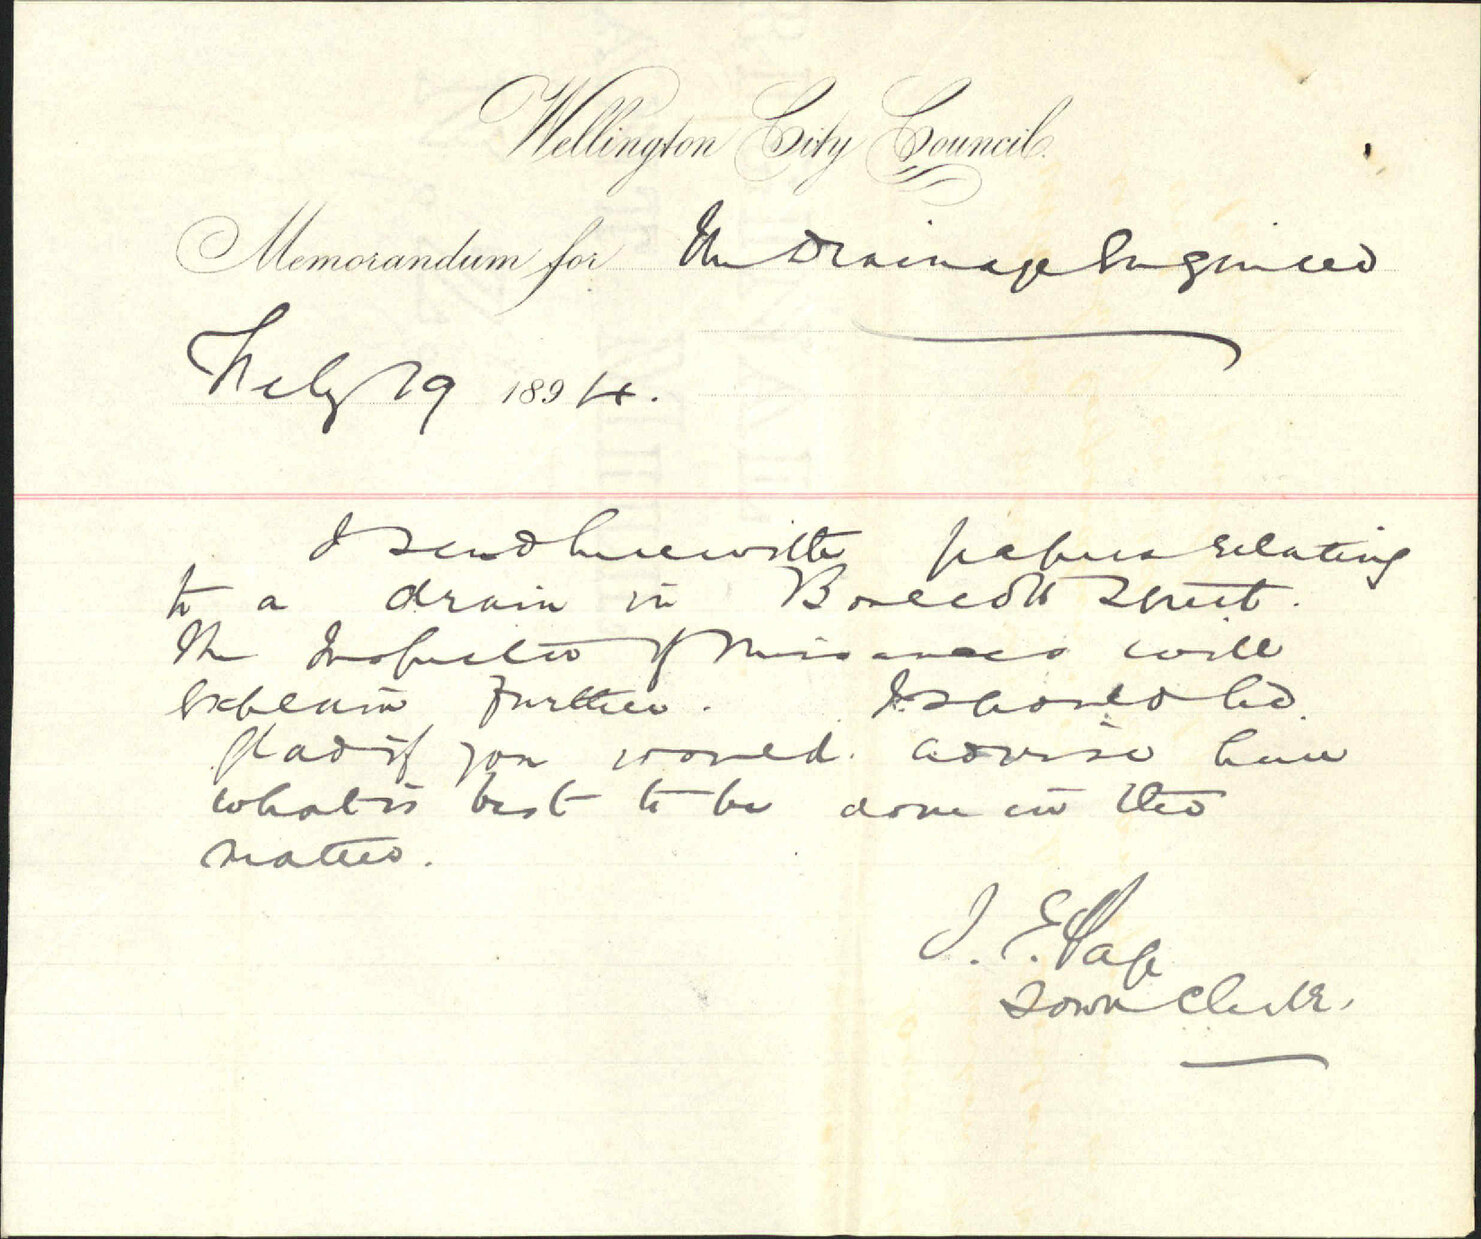 Wellington City Council.
Memorandum for The Drainage Engineer
Feby 19 1894.
I send herewith papers relating
to a drain in Boulcott Street.
The Inspector of Nuisances will
explain further. I should be
glad if you would advise him
what is best to be done in the
matter.
J. E. Page
Town Clerk.